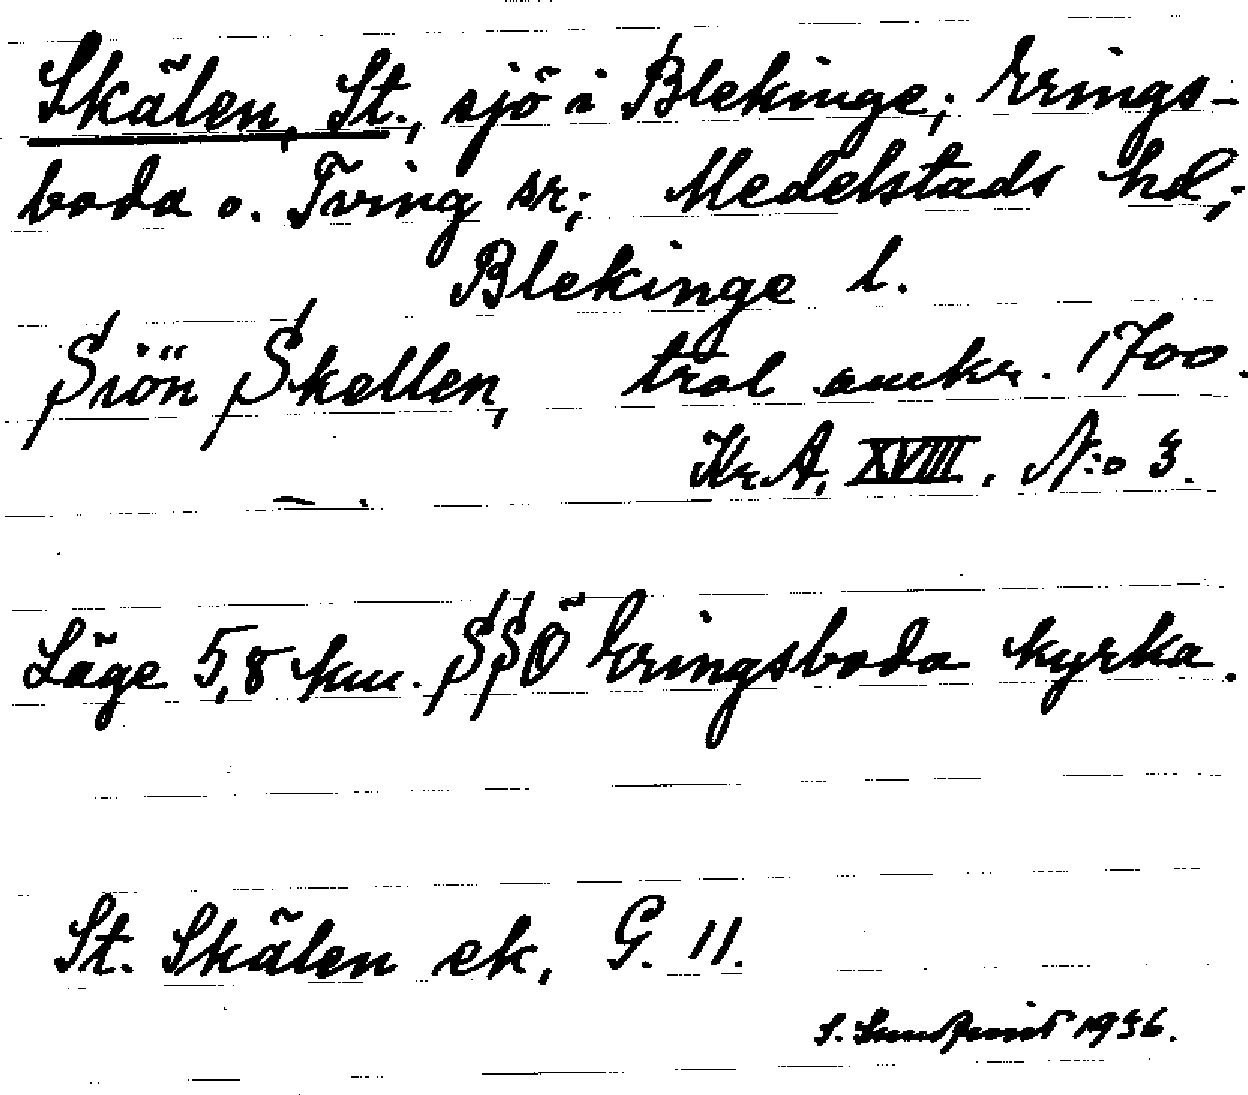 Skälen, St., sjö i Blekinge; Erings-
boda o. Tving sr; Medelstads hd;
Blekinge l.
Siön Skellen, trol omkr. 1700.
Kr.A. XVIII. N:o 3.
Läge 5,8 km. SSÖ Eringsboda kyrka.
St. Skälen ek. G. 11.
S. 1936.